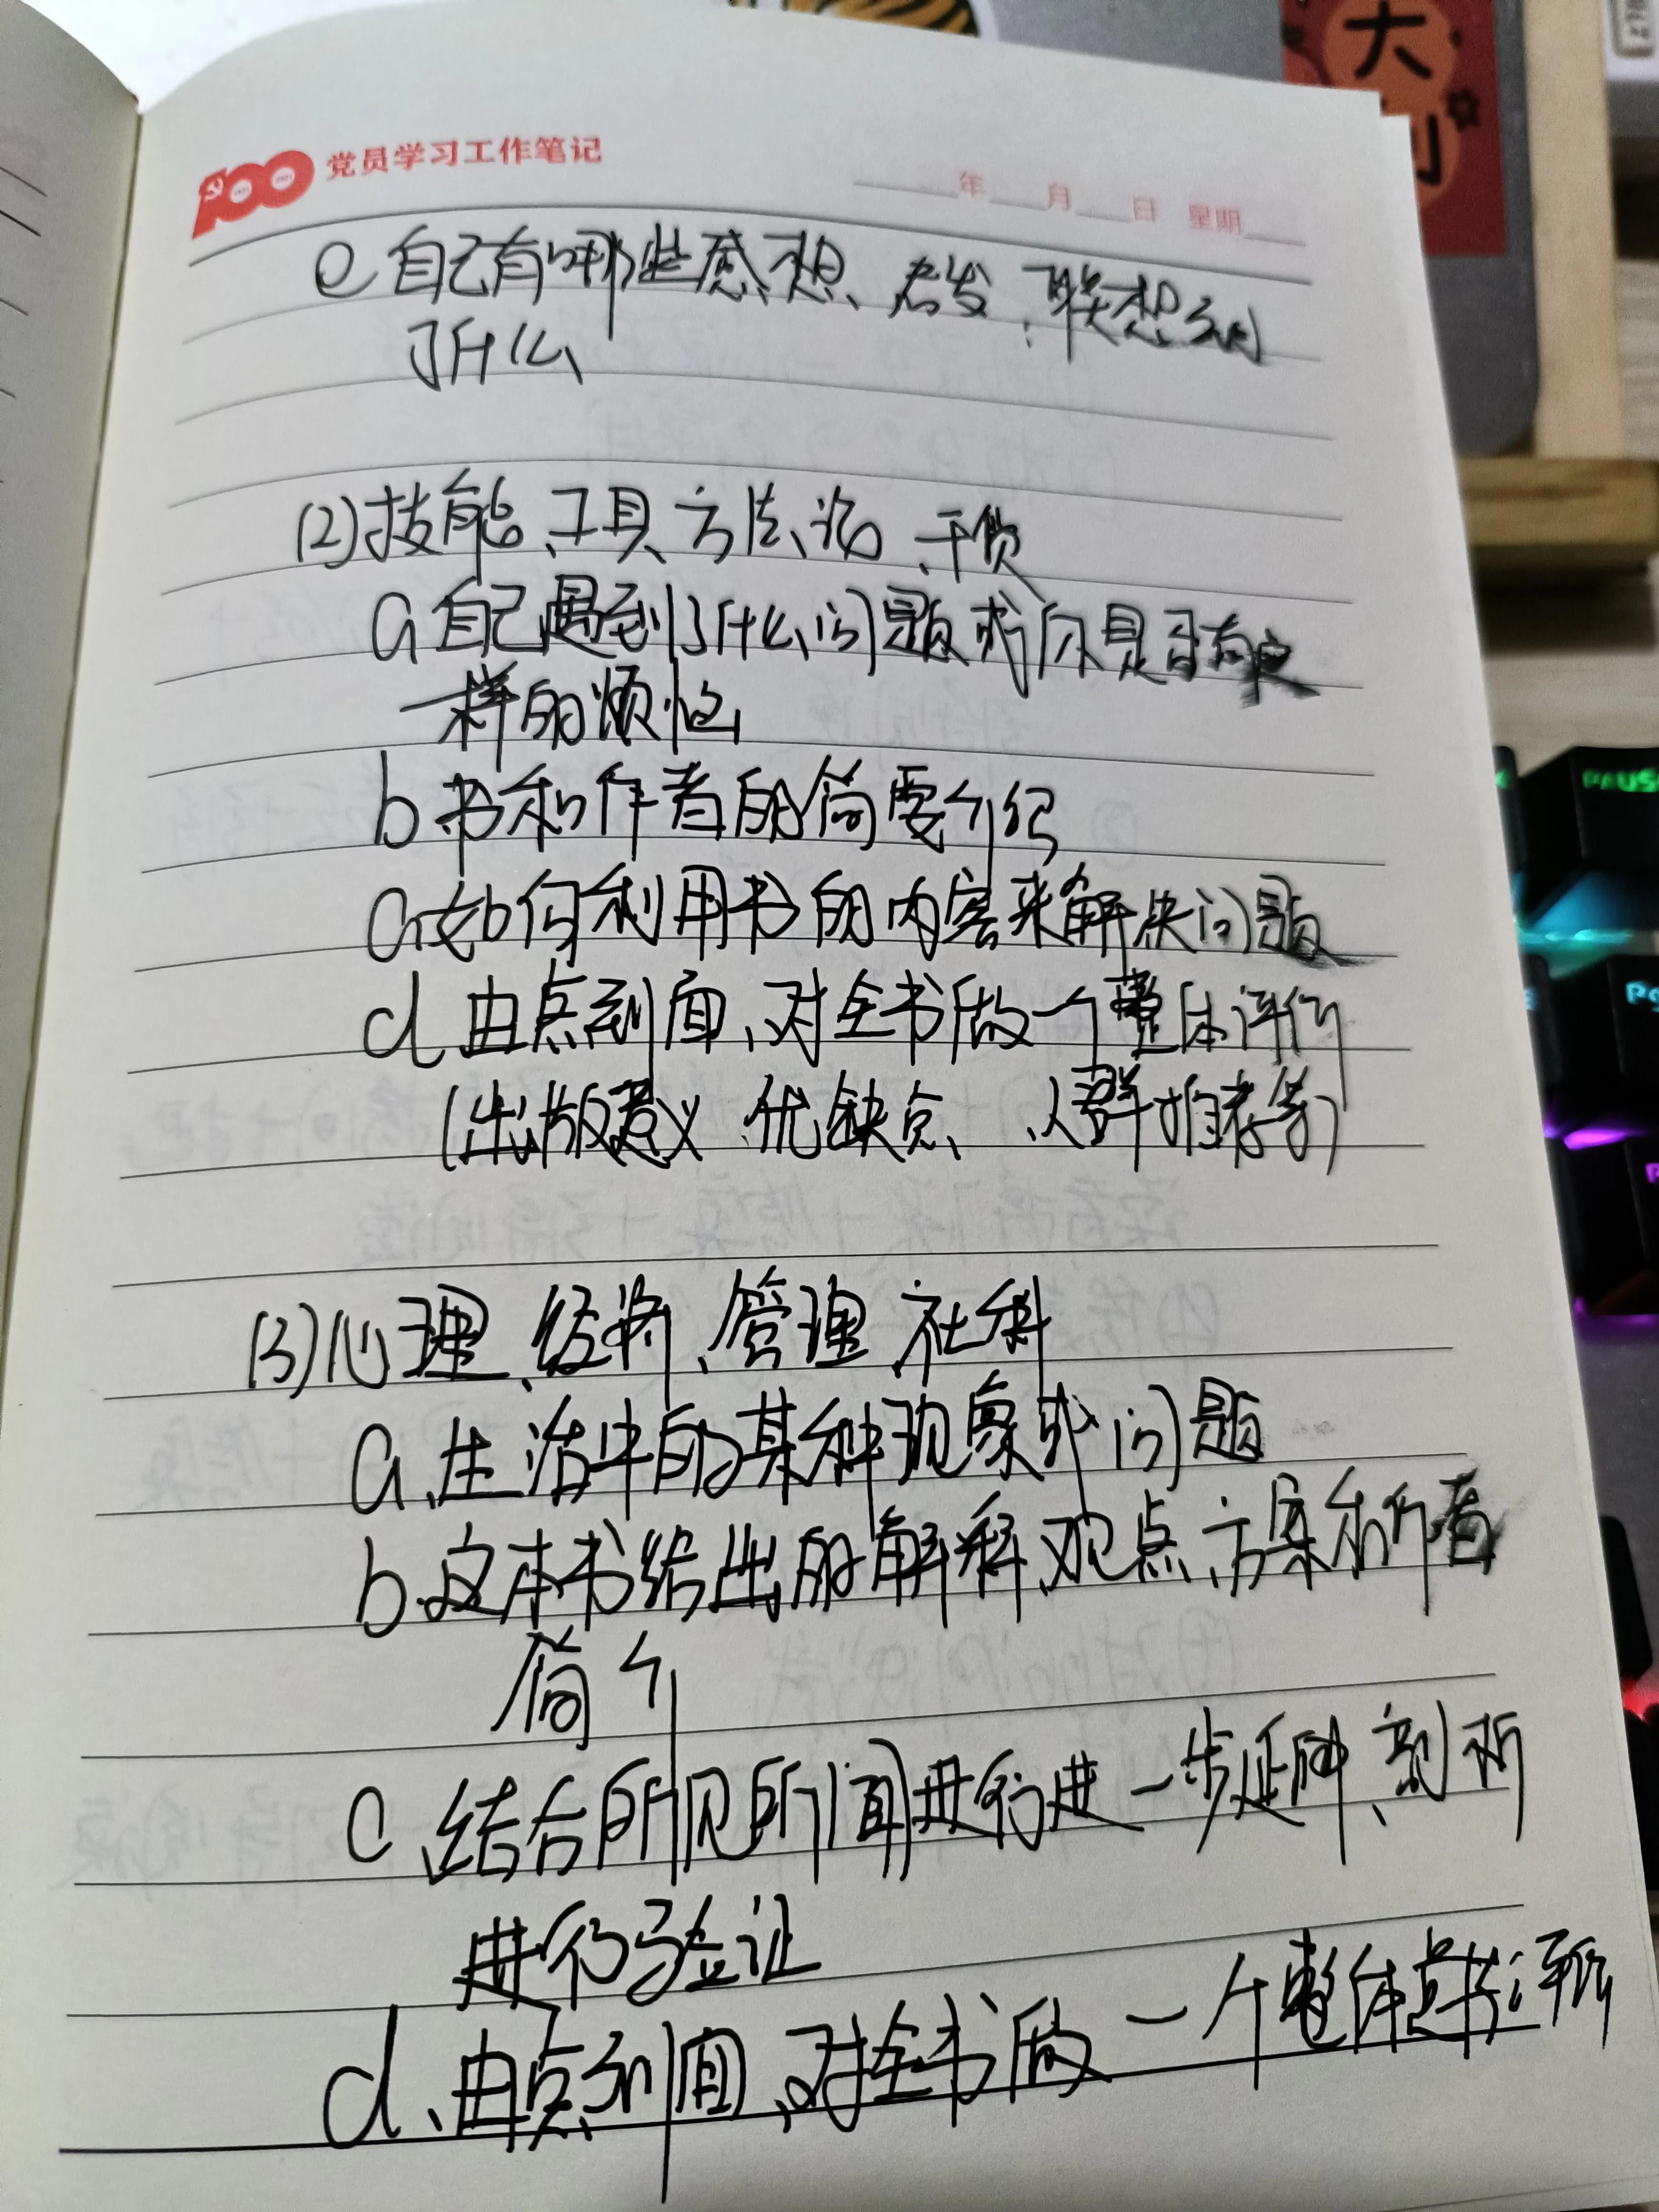 大
利
党员学习工作笔记
年 月 日 星期
e 自己有哪些感想、启发、联想到
了什么
(2)技能、工具、方法论、干货
a 自己遇到了什么问题或你是否有
一样的烦恼
b.书和作者的简要介绍
c.如何利用书的内容来解决问题
d.由点到面、对全书做一个整体评价
(出版意义、优缺点、人群推荐等)
(3)心理、经济、管理、社科
a、生活中的某种现象或问题
b.这本书给出的解释、观点、方案和作者
简介
c、结合所见所闻进行进一步延伸、剖析
进行验证
d、由点到面、对全书做一个整体
PAUS